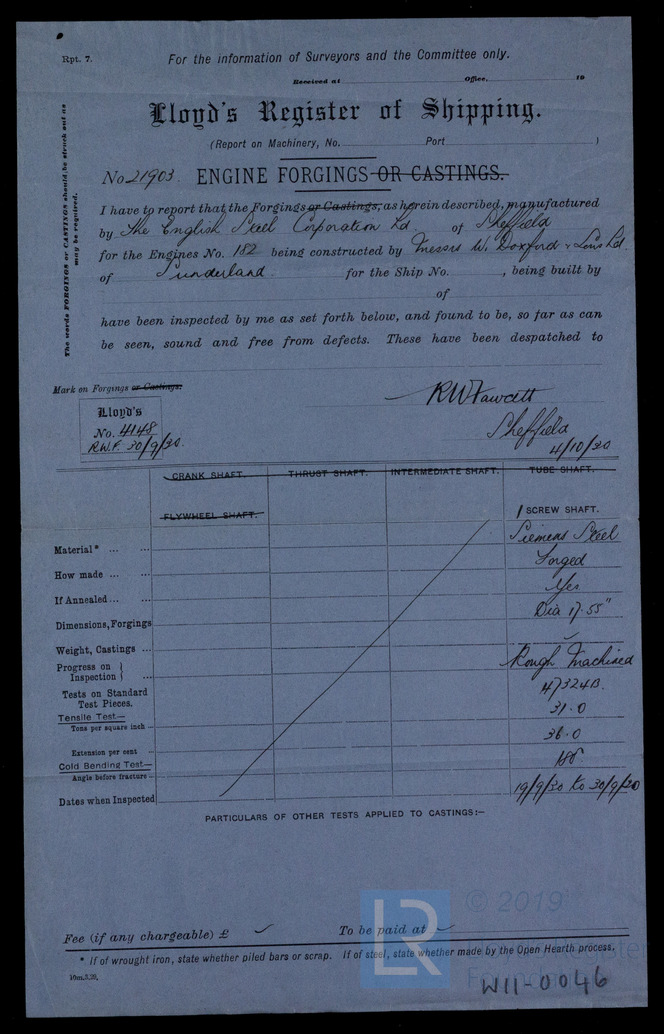 Rpt. 7.
For the information of Surveyors and the Committee only.
Received at Office, 19
Lloyd's Register of Shipping.
(Report on Machinery, No. Port )
No 21903. ENGINE FORGINGS OR CASTINGS.
The words FORGINGS or CASTINGS should be struck out as
may be required.
I have to report that the Forgings or Castings, as herein described, manufactured
by The English Steel Corporation Ld. of Sheffield
for the Engines No. 182 being constructed by Messrs W. Doxford & Sons Ld.
of Sunderland for the Ship No. , being built by
of
have been inspected by me as set forth below, and found to be, so far as can
be seen, sound and free from defects. These have been despatched to
Mark on Forgings or Castings.
Lloyd's
No. 4148
R.W.F. 30/9/30.
RW Fawcett
Sheffield
4/10/30
CRANK SHAFT. THRUST SHAFT. INTERMEDIATE SHAFT. TUBE SHAFT.
FLYWHEEL SHAFT. 1 SCREW SHAFT.
Material* ... ... Siemens Steel
How made ... ... Forged
If Annealed ... ... Yes
Dimensions, Forgings Dia 17.55"
Weight, Castings ...
Progress on
Inspection ... Rough Machined
Tests on Standard
Test Pieces. 47324B.
Tensile Test—
Tons per square inch ... 31.0
Extension per cent 36.0
Cold Bending Test—
Angle before fracture ... 180°
Dates when Inspected 19/9/30 to 30/9/30
PARTICULARS OF OTHER TESTS APPLIED TO CASTINGS:—
Fee (if any chargeable) £ To be paid at
* If of wrought iron, state whether piled bars or scrap. If of steel, state whether made by the Open Hearth process.
LR
© 2019
W11-0046